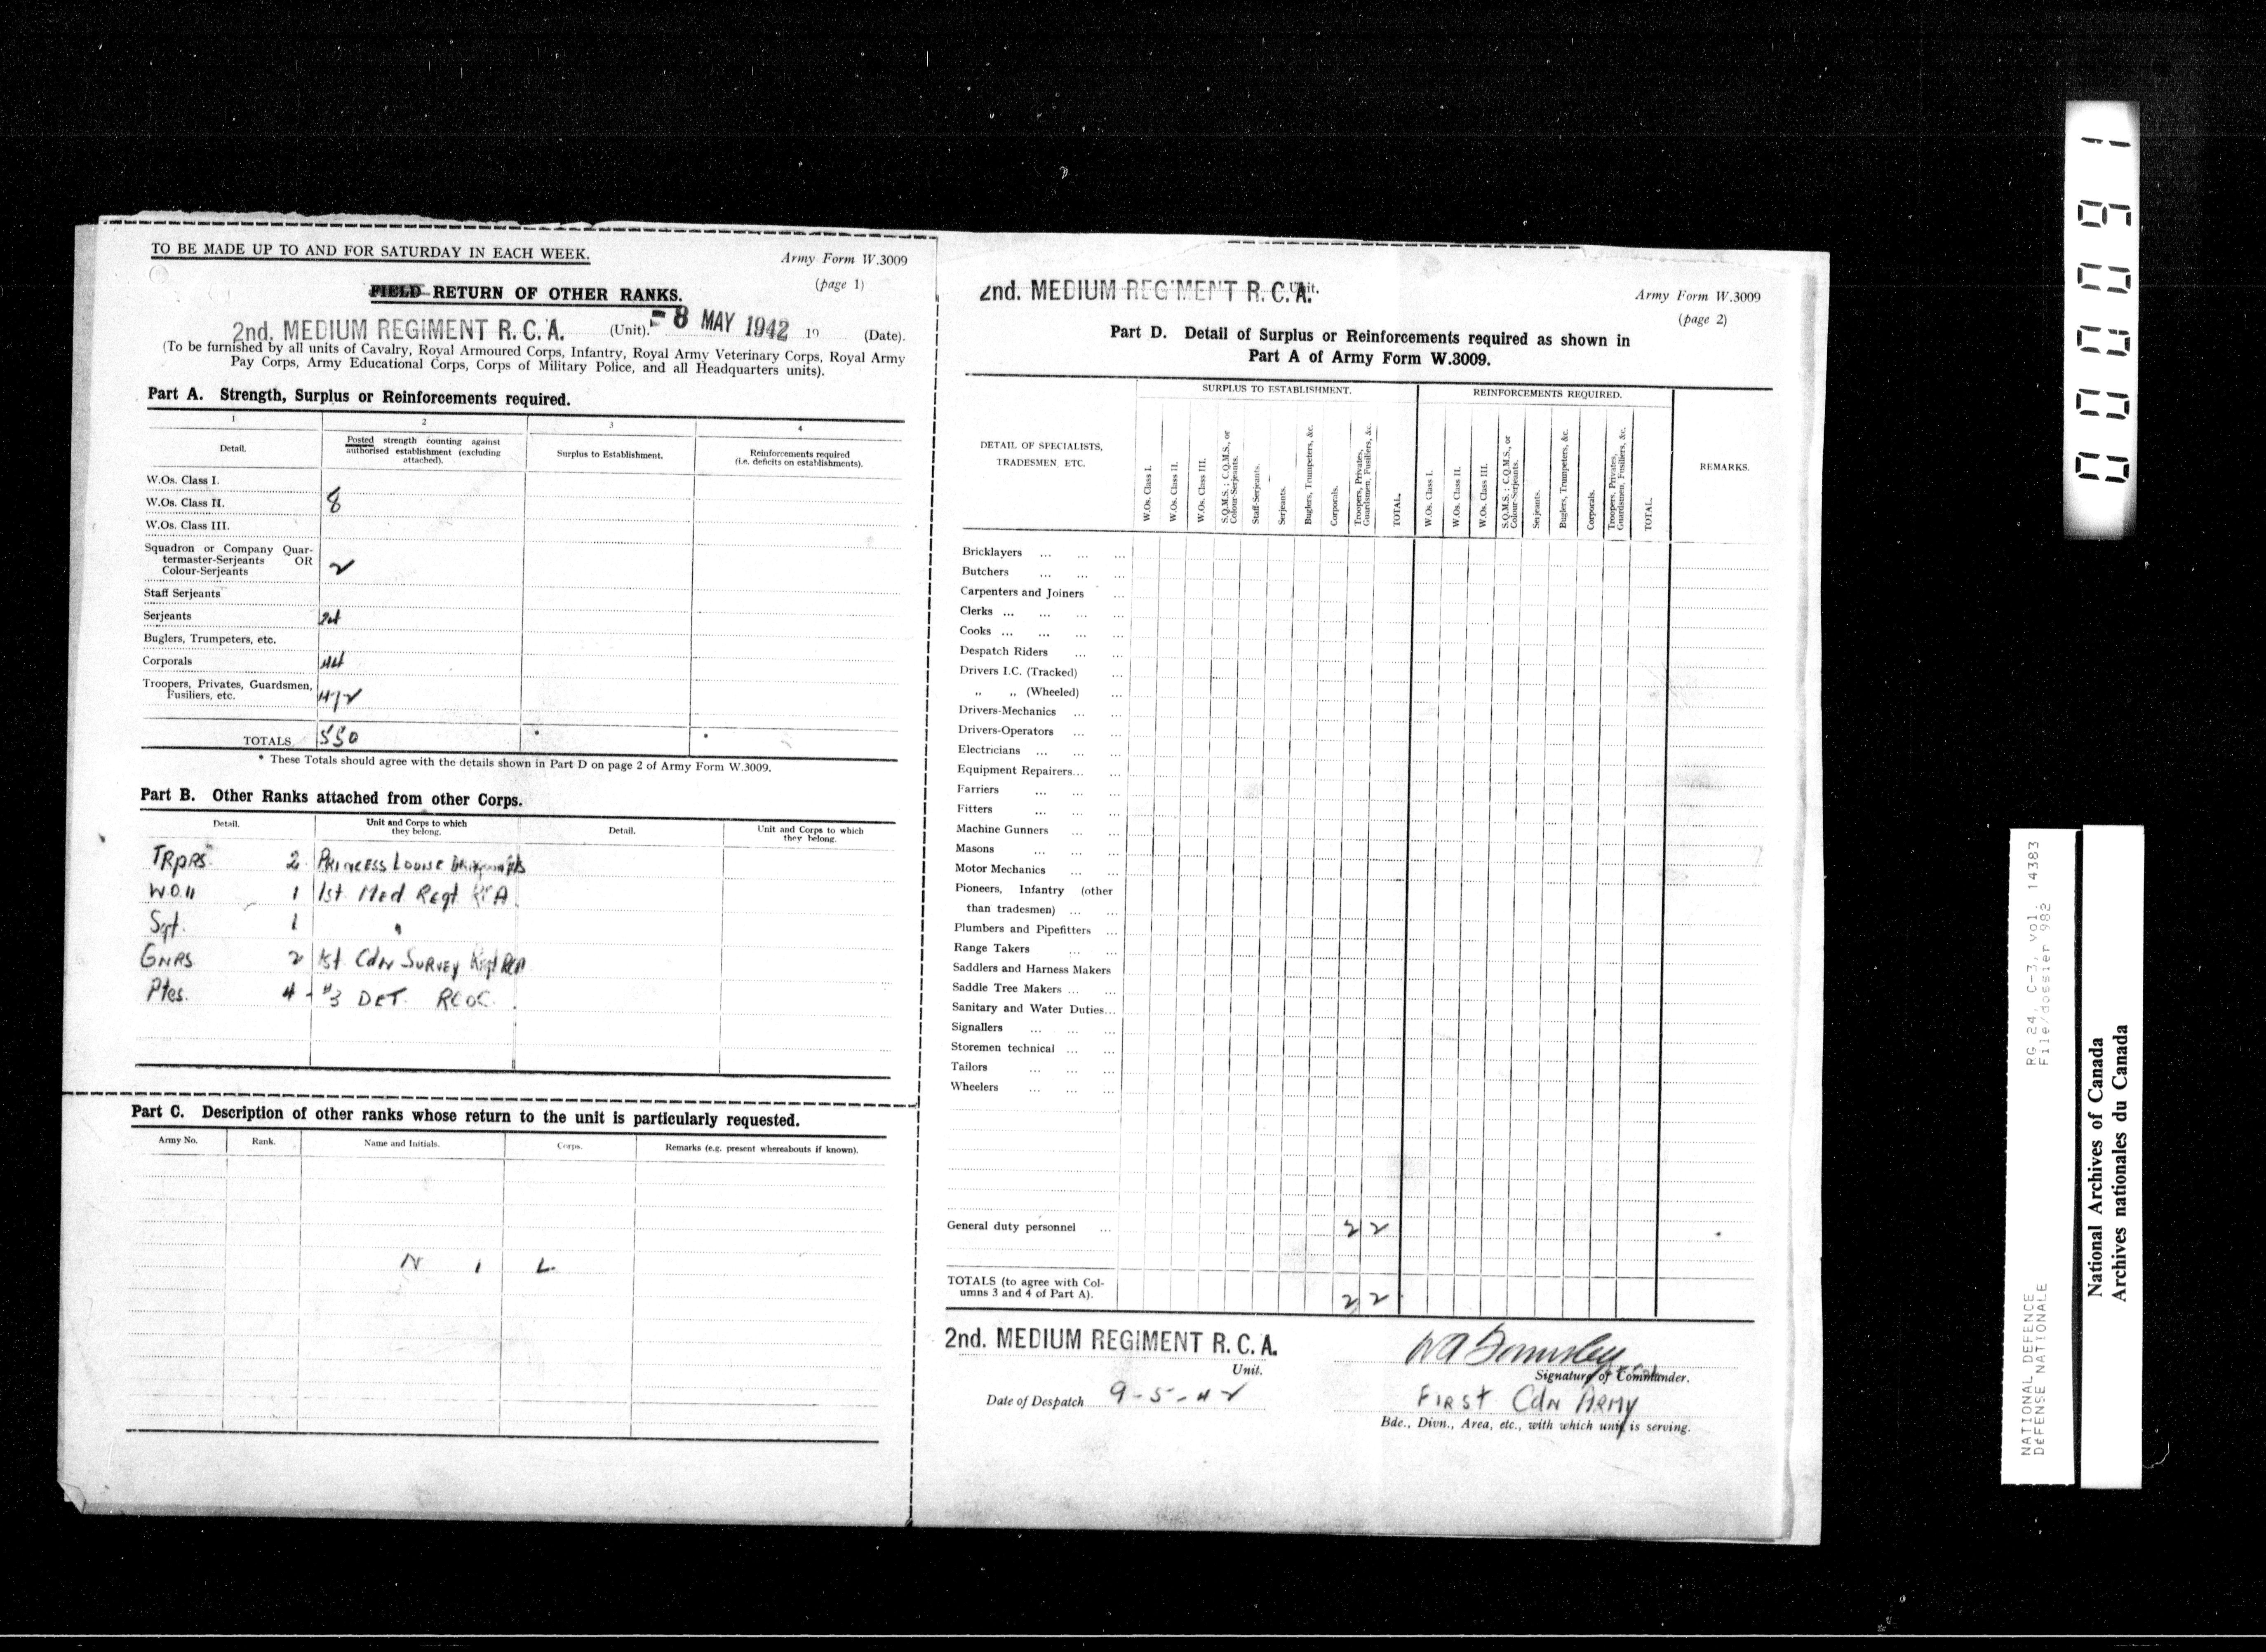 TO BE MADE UP TO AND FOR SATURDAY IN EACH WEEK.
Army Form W.3009
(page 1)
FIELD RETURN OF OTHER RANKS.
2nd. MEDIUM REGIMENT R.C.A. (Unit). - 8 MAY 1942 19 (Date).
(To be furnished by all units of Cavalry, Royal Armoured Corps, Infantry, Royal Army Veterinary Corps, Royal Army
Pay Corps, Army Educational Corps, Corps of Military Police, and all Headquarters units).
Part A. Strength, Surplus or Reinforcements required.
1 2 3 4
Detail.
Posted strength counting against
authorised establishment (excluding
attached).
Surplus to Establishment.
Reinforcements required
(i.e. deficits on establishments).
W.Os. Class I.
W.Os. Class II. 8
W.Os. Class III.
Squadron or Company Quar-
termaster-Serjeants OR
Colour-Serjeants 2
Staff Serjeants
Serjeants 24
Buglers, Trumpeters, etc.
Corporals 44
Troopers, Privates, Guardsmen,
Fusiliers, etc. 472
TOTALS 550 * *
* These Totals should agree with the details shown in Part D on page 2 of Army Form W.3009.
Part B. Other Ranks attached from other Corps.
Detail.
Unit and Corps to which
they belong.
Detail.
Unit and Corps to which
they belong.
TRPRS 2 PRINCESS LOUISE
W.O.II 1 1st Med Regt RCA
Sgt. 1 "
GNRS 2 1st Cdn SURVEY Regt RCA
Ptes. 4 - #3 DET. RCOC.
Part C. Description of other ranks whose return to the unit is particularly requested.
Army No. Rank. Name and Initials. Corps. Remarks (e.g. present whereabouts if known).
N I L
2nd. MEDIUM REGIMENT R.C.A. Unit.
Army Form W.3009
(page 2)
Part D. Detail of Surplus or Reinforcements required as shown in
Part A of Army Form W.3009.
DETAIL OF SPECIALISTS,
TRADESMEN, ETC.
SURPLUS TO ESTABLISHMENT.
W.Os. Class I.
W.Os. Class II.
W.Os. Class III.
S.Q.M.S.; C.Q.M.S., or
Colour-Serjeants.
Staff-Serjeants.
Serjeants.
Buglers, Trumpeters, &c.
Corporals.
Troopers, Privates,
Guardsmen, Fusiliers, &c.
TOTAL.
REINFORCEMENTS REQUIRED.
W.Os. Class I.
W.Os. Class II.
W.Os. Class III.
S.Q.M.S.; C.Q.M.S., or
Colour-Serjeants.
Serjeants.
Buglers, Trumpeters, &c.
Corporals.
Troopers, Privates,
Guardsmen, Fusiliers, &c.
TOTAL.
REMARKS.
Bricklayers ... ... ...
Butchers ... ... ...
Carpenters and Joiners ...
Clerks ... ... ... ...
Cooks ... ... ... ...
Despatch Riders ... ...
Drivers I.C. (Tracked) ...
„ „ (Wheeled) ...
Drivers-Mechanics ... ...
Drivers-Operators ... ...
Electricians ... ... ...
Equipment Repairers... ...
Farriers ... ... ...
Fitters ... ... ...
Machine Gunners ... ...
Masons ... ... ...
Motor Mechanics ... ...
Pioneers, Infantry (other
than tradesmen) ... ...
Plumbers and Pipefitters ...
Range Takers ... ...
Saddlers and Harness Makers
Saddle Tree Makers ... ...
Sanitary and Water Duties...
Signallers ... ... ...
Storemen technical ... ...
Tailors ... ... ...
Wheelers ... ... ...
General duty personnel ... 2 2
TOTALS (to agree with Col-
umns 3 and 4 of Part A). 2 2
2nd. MEDIUM REGIMENT R.C.A.
Unit.
Signature of Commander.
Date of Despatch 9-5-42
FIRST Cdn ARMY
Bde., Divn., Area, etc., with which unit is serving.
000091
RG 24, C-3, vol. 14383
File/dossier 982
NATIONAL DEFENCE
DÉFENSE NATIONALE
National Archives of Canada
Archives nationales du Canada